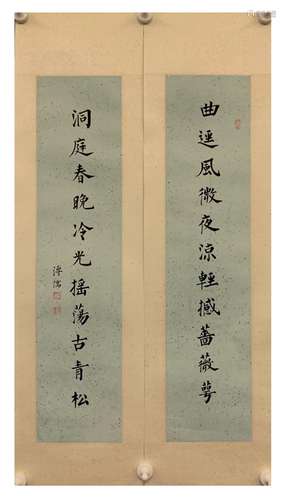 曲逕風微夜涼輕撼薔薇萼
洞庭春晚冷光搖蕩古青松
溥儒